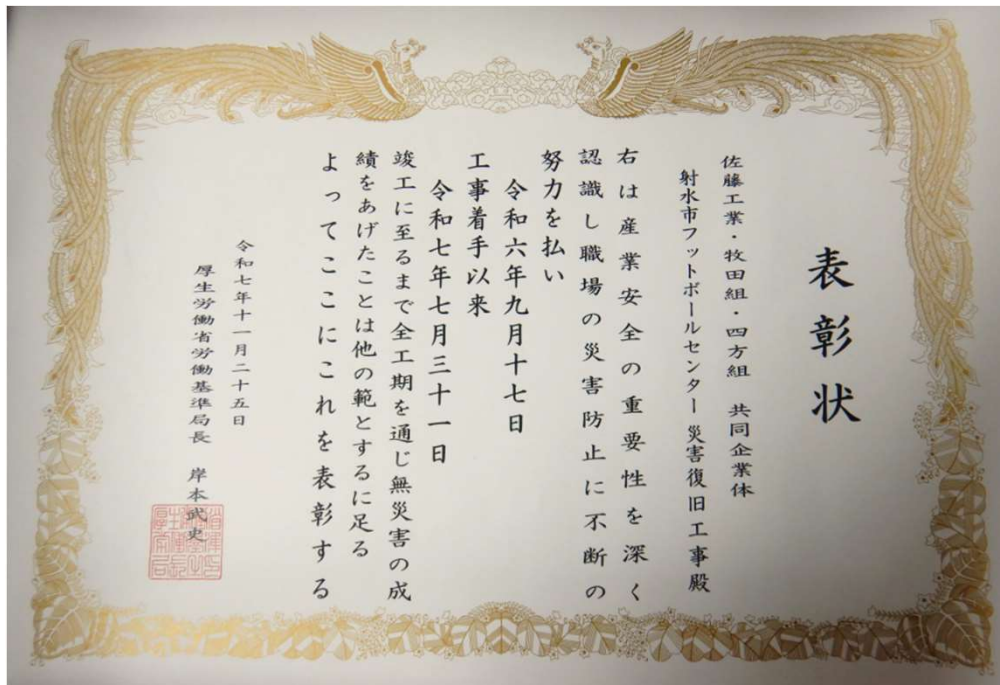 表彰状
佐藤工業・牧田組・四方組　共同企業体
射水市フットボールセンター災害復旧工事殿
右は産業安全の重要性を深く
認識し職場の災害防止に不断の
努力を払い
令和六年九月十七日
工事着手以来
令和七年七月三十一日
竣工に至るまで全工期を通じ無災害の成
績をあげたことは他の範とするに足る
よってここにこれを表彰する
令和七年十一月二十五日
厚生労働省労働基準局長　岸本武史